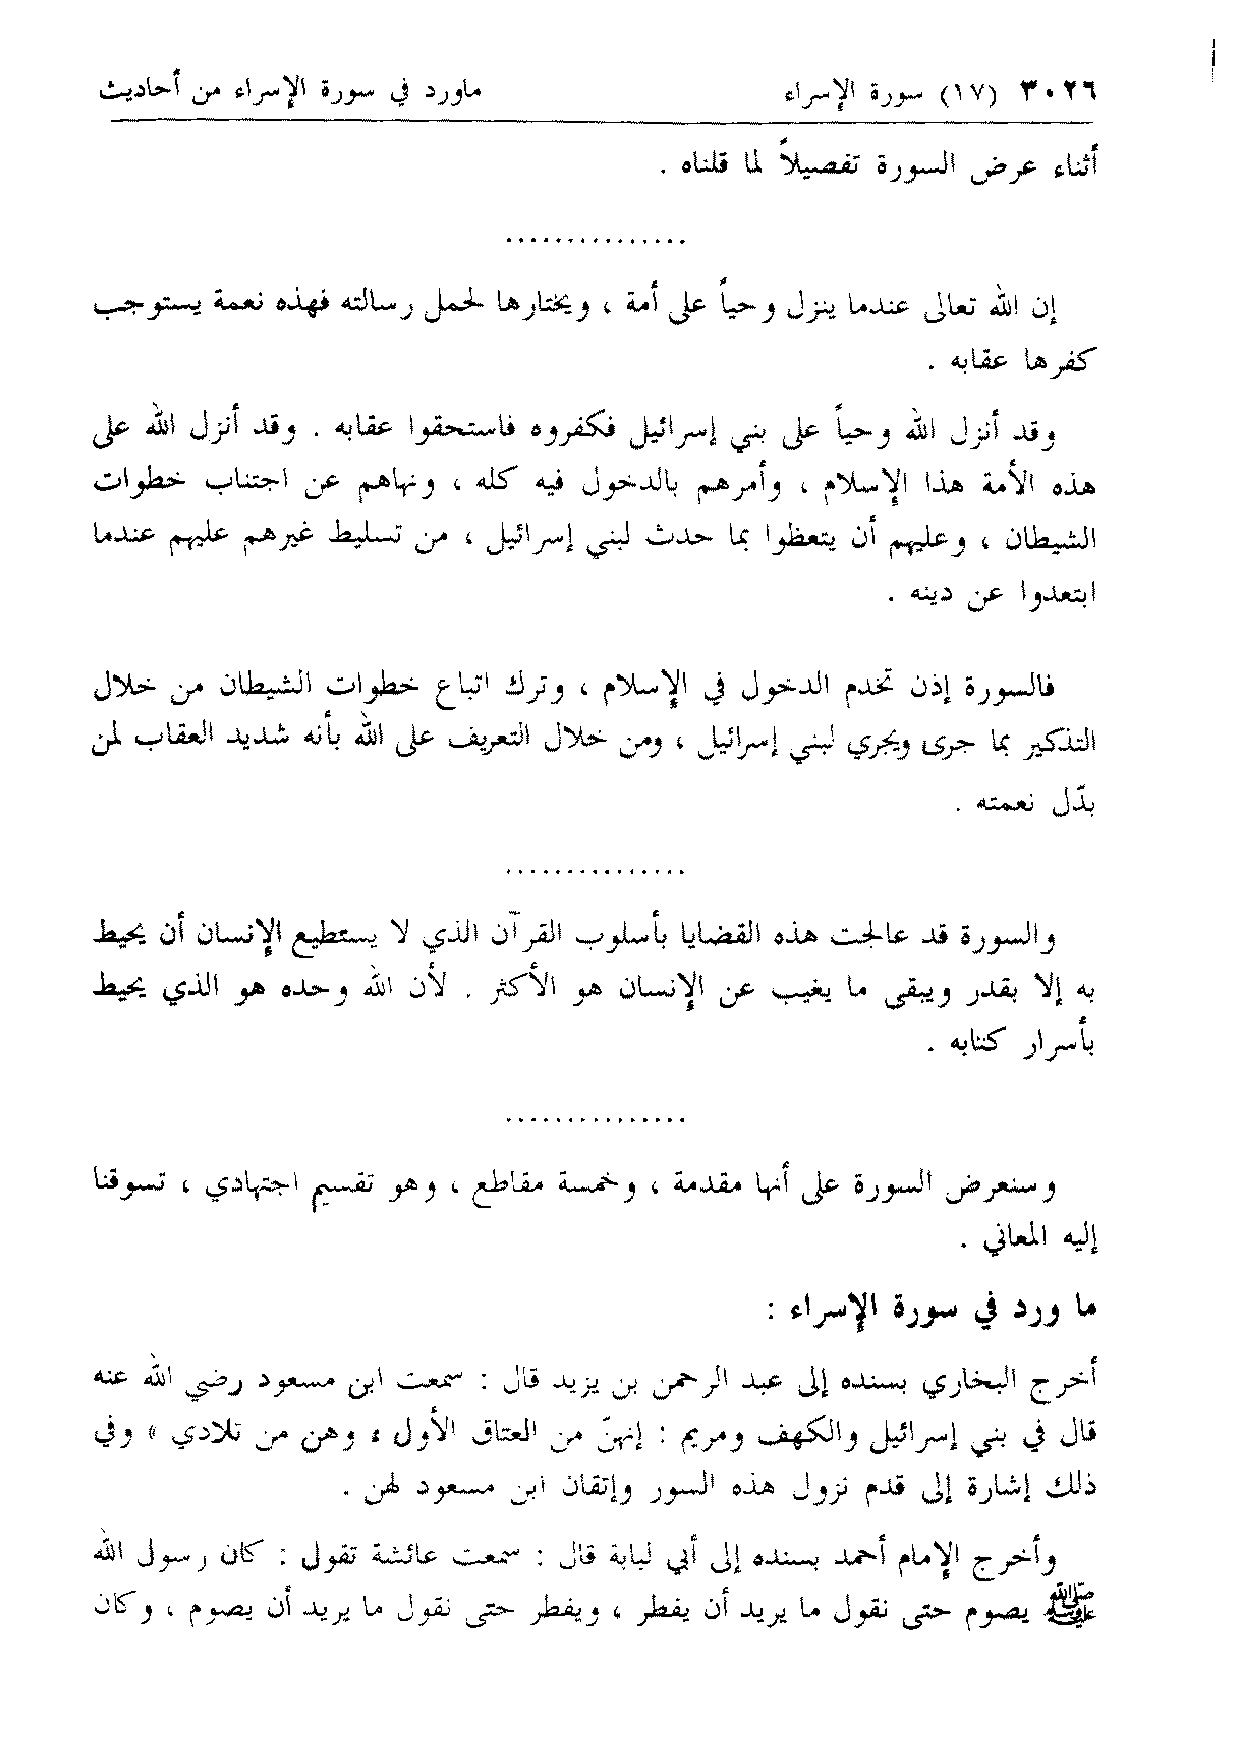 ٣٠٢٦ (١٧) سورة الإسراء ماورد في سورة الإسراء من أحاديث
أثناء عرض السورة تفصيلاً لما قلناه .
...............
إن الله تعالى عندما ينزل وحياً على أمة ، ويختارها لحمل رسالته فهذه نعمة يستوجب
كفرها عقابه .
وقد أنزل الله وحياً على بني إسرائيل فكفروه فاستحقوا عقابه . وقد أنزل الله على
هذه الأمة هذا الإسلام ، وأمرهم بالدخول فيه كله ، ونهاهم عن اجتناب خطوات
الشيطان ، وعليهم أن يتعظوا بما حدث لبني إسرائيل ، من تسليط غيرهم عليهم عندما
ابتعدوا عن دينه .
فالسورة إذن تخدم الدخول في الإسلام ، وترك اتباع خطوات الشيطان من خلال
التذكير بما جرى ويجري لبني إسرائيل ، ومن خلال التعريف على الله بأنه شديد العقاب لمن
بدّل نعمته .
...............
والسورة قد عالجت هذه القضايا بأسلوب القرآن الذي لا يستطيع الإنسان أن يحيط
به إلا بقدر ويبقى ما يغيب عن الإنسان هو الأكثر . لأن الله وحده هو الذي يحيط
بأسرار كتابه .
...............
وسنعرض السورة على أنها مقدمة ، وخمسة مقاطع ، وهو تقسيم اجتهادي ، تسوقنا
إليه المعاني .
ما ورد في سورة الإسراء :
أخرج البخاري بسنده إلى عبد الرحمن بن يزيد قال : سمعت ابن مسعود رضي الله عنه
قال في بني إسرائيل والكهف ومريم : إنهنّ من العتاق الأول ، وهن من تلادي » وفي
ذلك إشارة إلى قدم نزول هذه السور وإتقان ابن مسعود لهن .
وأخرج الإمام أحمد بسنده إلى أبي لبابة قال : سمعت عائشة تقول : كان رسول الله
ﷺ يصوم حتى نقول ما يريد أن يفطر ، ويفطر حتى نقول ما يريد أن يصوم ، وكان